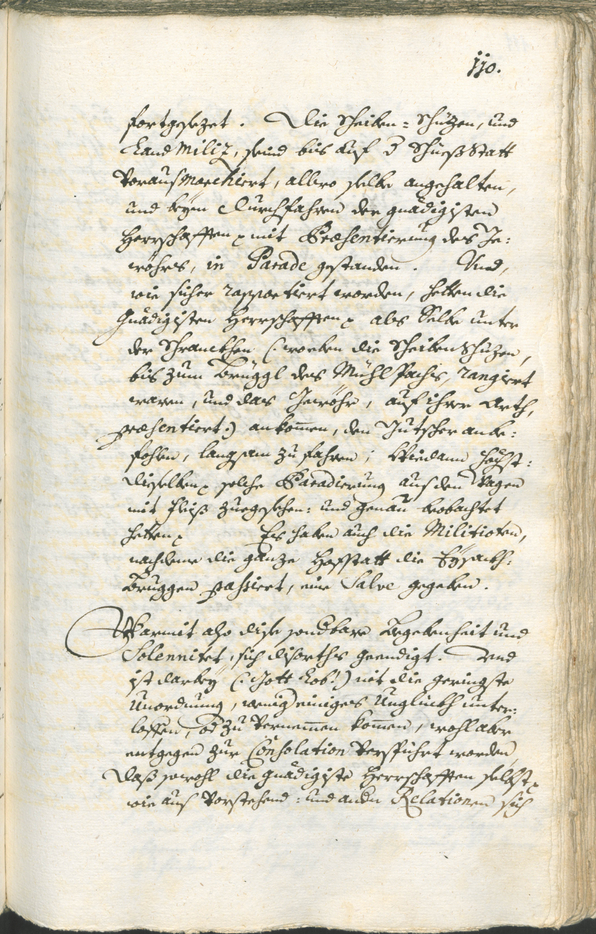 110.
fortgesezet. Die Scheiben-Schüzen, und
Land Miliz, seind bis auf 3 Schuss Statt
Voraus marchiert, allwo selbe angehalten,
und beÿm Durchfahren der gnädigisten
Herrschafften mit Præsentierung des Ge:
wöhrs, in Parade gestanden. Und,
wie sicher rapportiert worden, hetten die
Gnädigisten Herrschafften als Selbe unter
der Schranckhen (: worbeÿ die Scheibenschüzen,
bis zum Brüggl des Mühl Pachs, rangiert
waren, und das Gewöhr, auf ihre Arth,
præsentiert:) ankommen, den Gutscher anbe:
fohlen, langsam zu fahren; Wiedann Höchst:
Dieselben solche Paradierung aus dem Wagen
mit Fleiß zuegesehen: und genau beobachtet
hetten. Es haben auch die Militioten,
nachdeme die ganze Hoffstatt die Eÿsackh:
Bruggen passiert, eine Salve gegeben.
Warmit also dise sondbare Begebenheit und
Solennitet, sich diserths geendigt. Und
ist darbeÿ (: Gott Lob! :) nit die geringste
Unordnung, wenig einiges Unglückh unter:
loffen, od zu Vernemmen kommen, wohl aber
entgegen zur Consolation Verspührt worden
Daß sowohl die Gnädigiste Herrschafften selbst
wie aus Vorstehend: und andn Relationen sich